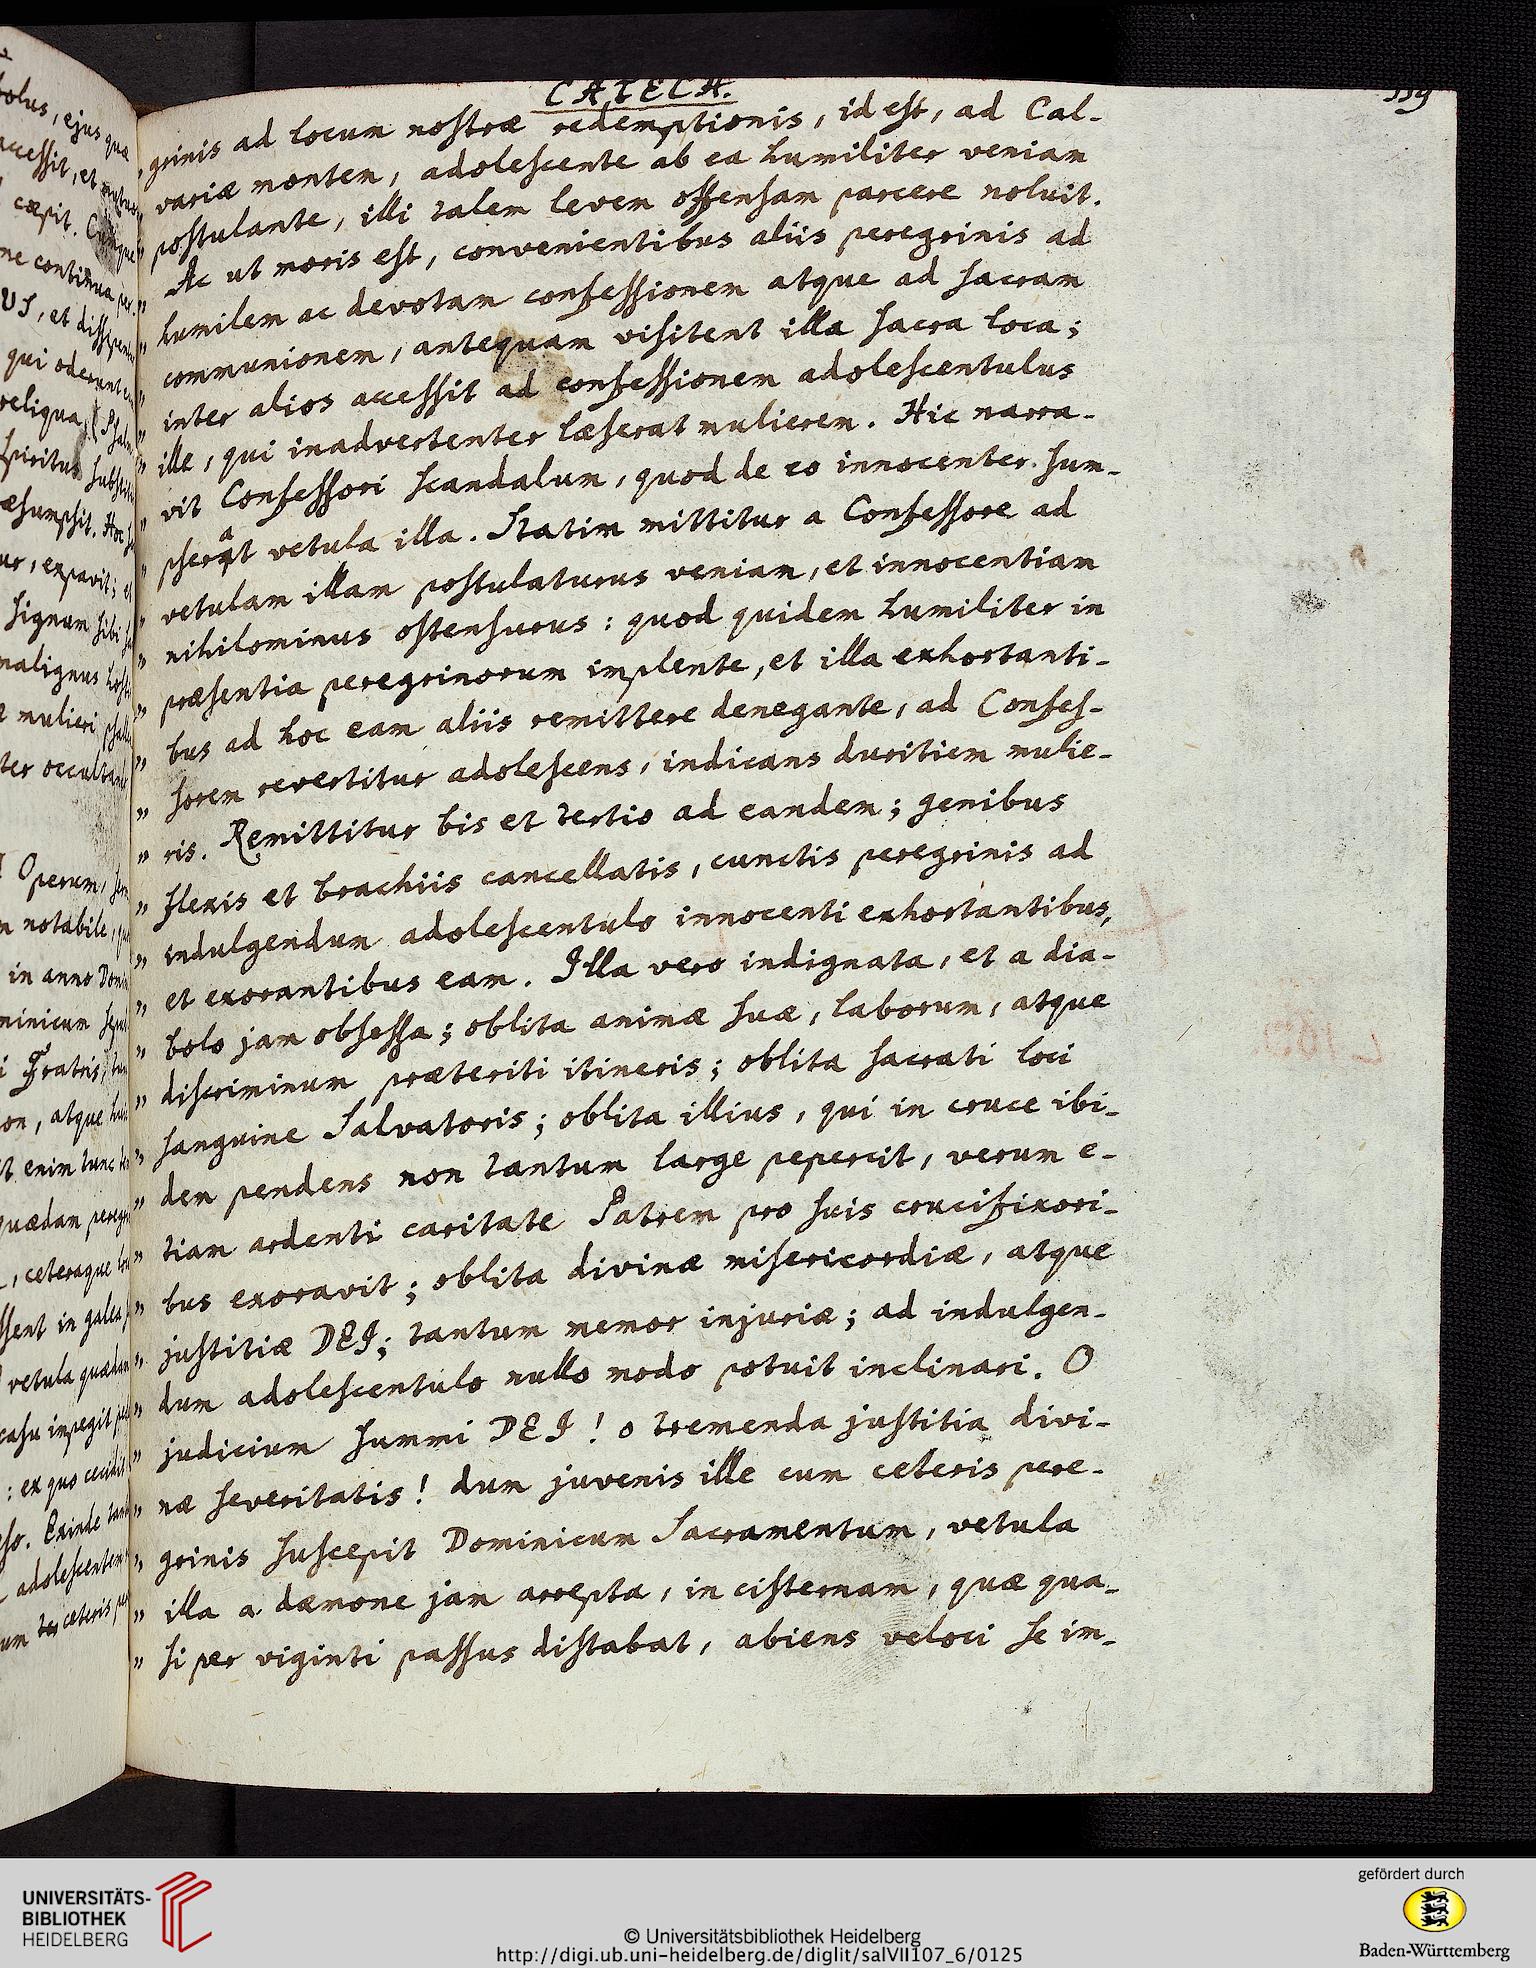 CATECH.
119
„ grinis ad locum nostræ redemptionis, id est, ad Cal-
„ variæ montem, adolescente ab ea humiliter veniam
„ postulante, illi talem levem offensam parcere noluit.
„ Ac ut moris est, convenientibus aliis peregrinis ad
„ humilem ac devotam confessionem atque ad sacram
„ communionem, antequam visitent illa sacra loca;
„ inter alios accessit ad confessionem adolescentulus
„ ille, qui inadvertenter læserat mulierem. Hic narra-
„ vit Confessori scandalum, quod de eo innocenter sum-
„ pserat vetula illa. Statim mittitur a Confessore ad
„ vetulam illam postulaturus veniam, et innocentiam
„ nihilominus ostensurus: quod quidem humiliter in
„ præsentia peregrinorum implente, et illa exhortanti-
„ bus ad hoc eam aliis remittere denegante, ad Confes-
„ sorem revertitur adolescens, indicans duritiem mulie-
„ ris. Remittitur bis et tertio ad eandem; genibus
„ flexis et brachiis cancellatis, cunctis peregrinis ad
„ indulgendum adolescentulo innocenti exhortantibus,
„ et exorantibus eam. Illa vero indignata, et a dia-
„ bolo jam obsessa; oblita animæ suæ, laborum, atque
„ discriminum præteriti itineris; oblita sacrati loci
„ sanguine Salvatoris; oblita illius, qui in cruce ibi-
„ dem pendens non tantum large pepercit, verum e-
„ tiam ardenti caritate Patrem pro suis crucifixori-
„ bus exoravit; oblita divinæ misericordiæ, atque
„ justitiæ DEI; tantum memor injuriæ; ad indulgen-
„ dum adolescentulo nullo modo potuit inclinari. O
„ judicium summi DEI! o tremenda justitia divi-
„ næ severitatis! dum juvenis ille cum ceteris pere-
„ grinis suscepit Dominicum Sacramentum, vetula
„ illa a dæmone jam arrepta, in cisternam, quæ qua-
„ si per viginti passus distabat, abiens veloci se im-
UNIVERSITÄTS-
BIBLIOTHEK
HEIDELBERG
© Universitätsbibliothek Heidelberg
http://digi.ub.uni-heidelberg.de/diglit/salVII107_6/0125
gefördert durch
Baden-Württemberg